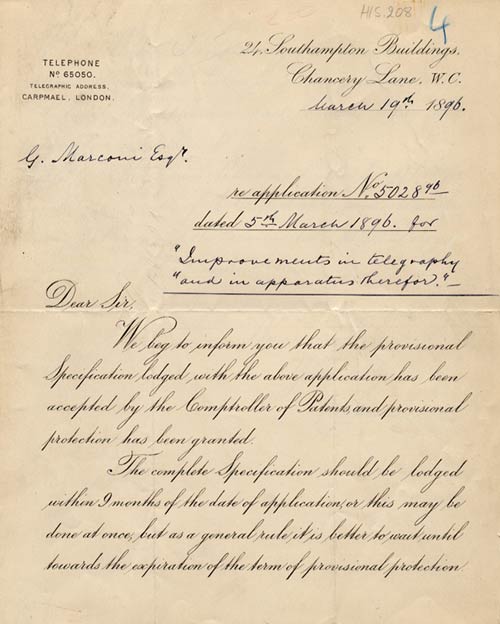 HIS.208
4
TELEPHONE
Nº 65050.
TELEGRAPHIC ADDRESS,
CARPMAEL, LONDON.
24, Southampton Buildings,
Chancery Lane, W.C.
March 19th 1896.
G. Marconi Esqr.
re application No. 5028 96
dated 5th March 1896. for
"Improvements in telegraphy
"and in apparatus therefor."—
Dear Sir,
We beg to inform you that the provisional
Specification lodged with the above application has been
accepted by the Comptroller of Patents, and provisional
protection has been granted.
The complete Specification should be lodged
within 9 months of the date of application, or this may be
done at once, but as a general rule it is better to wait until
towards the expiration of the term of provisional protection.